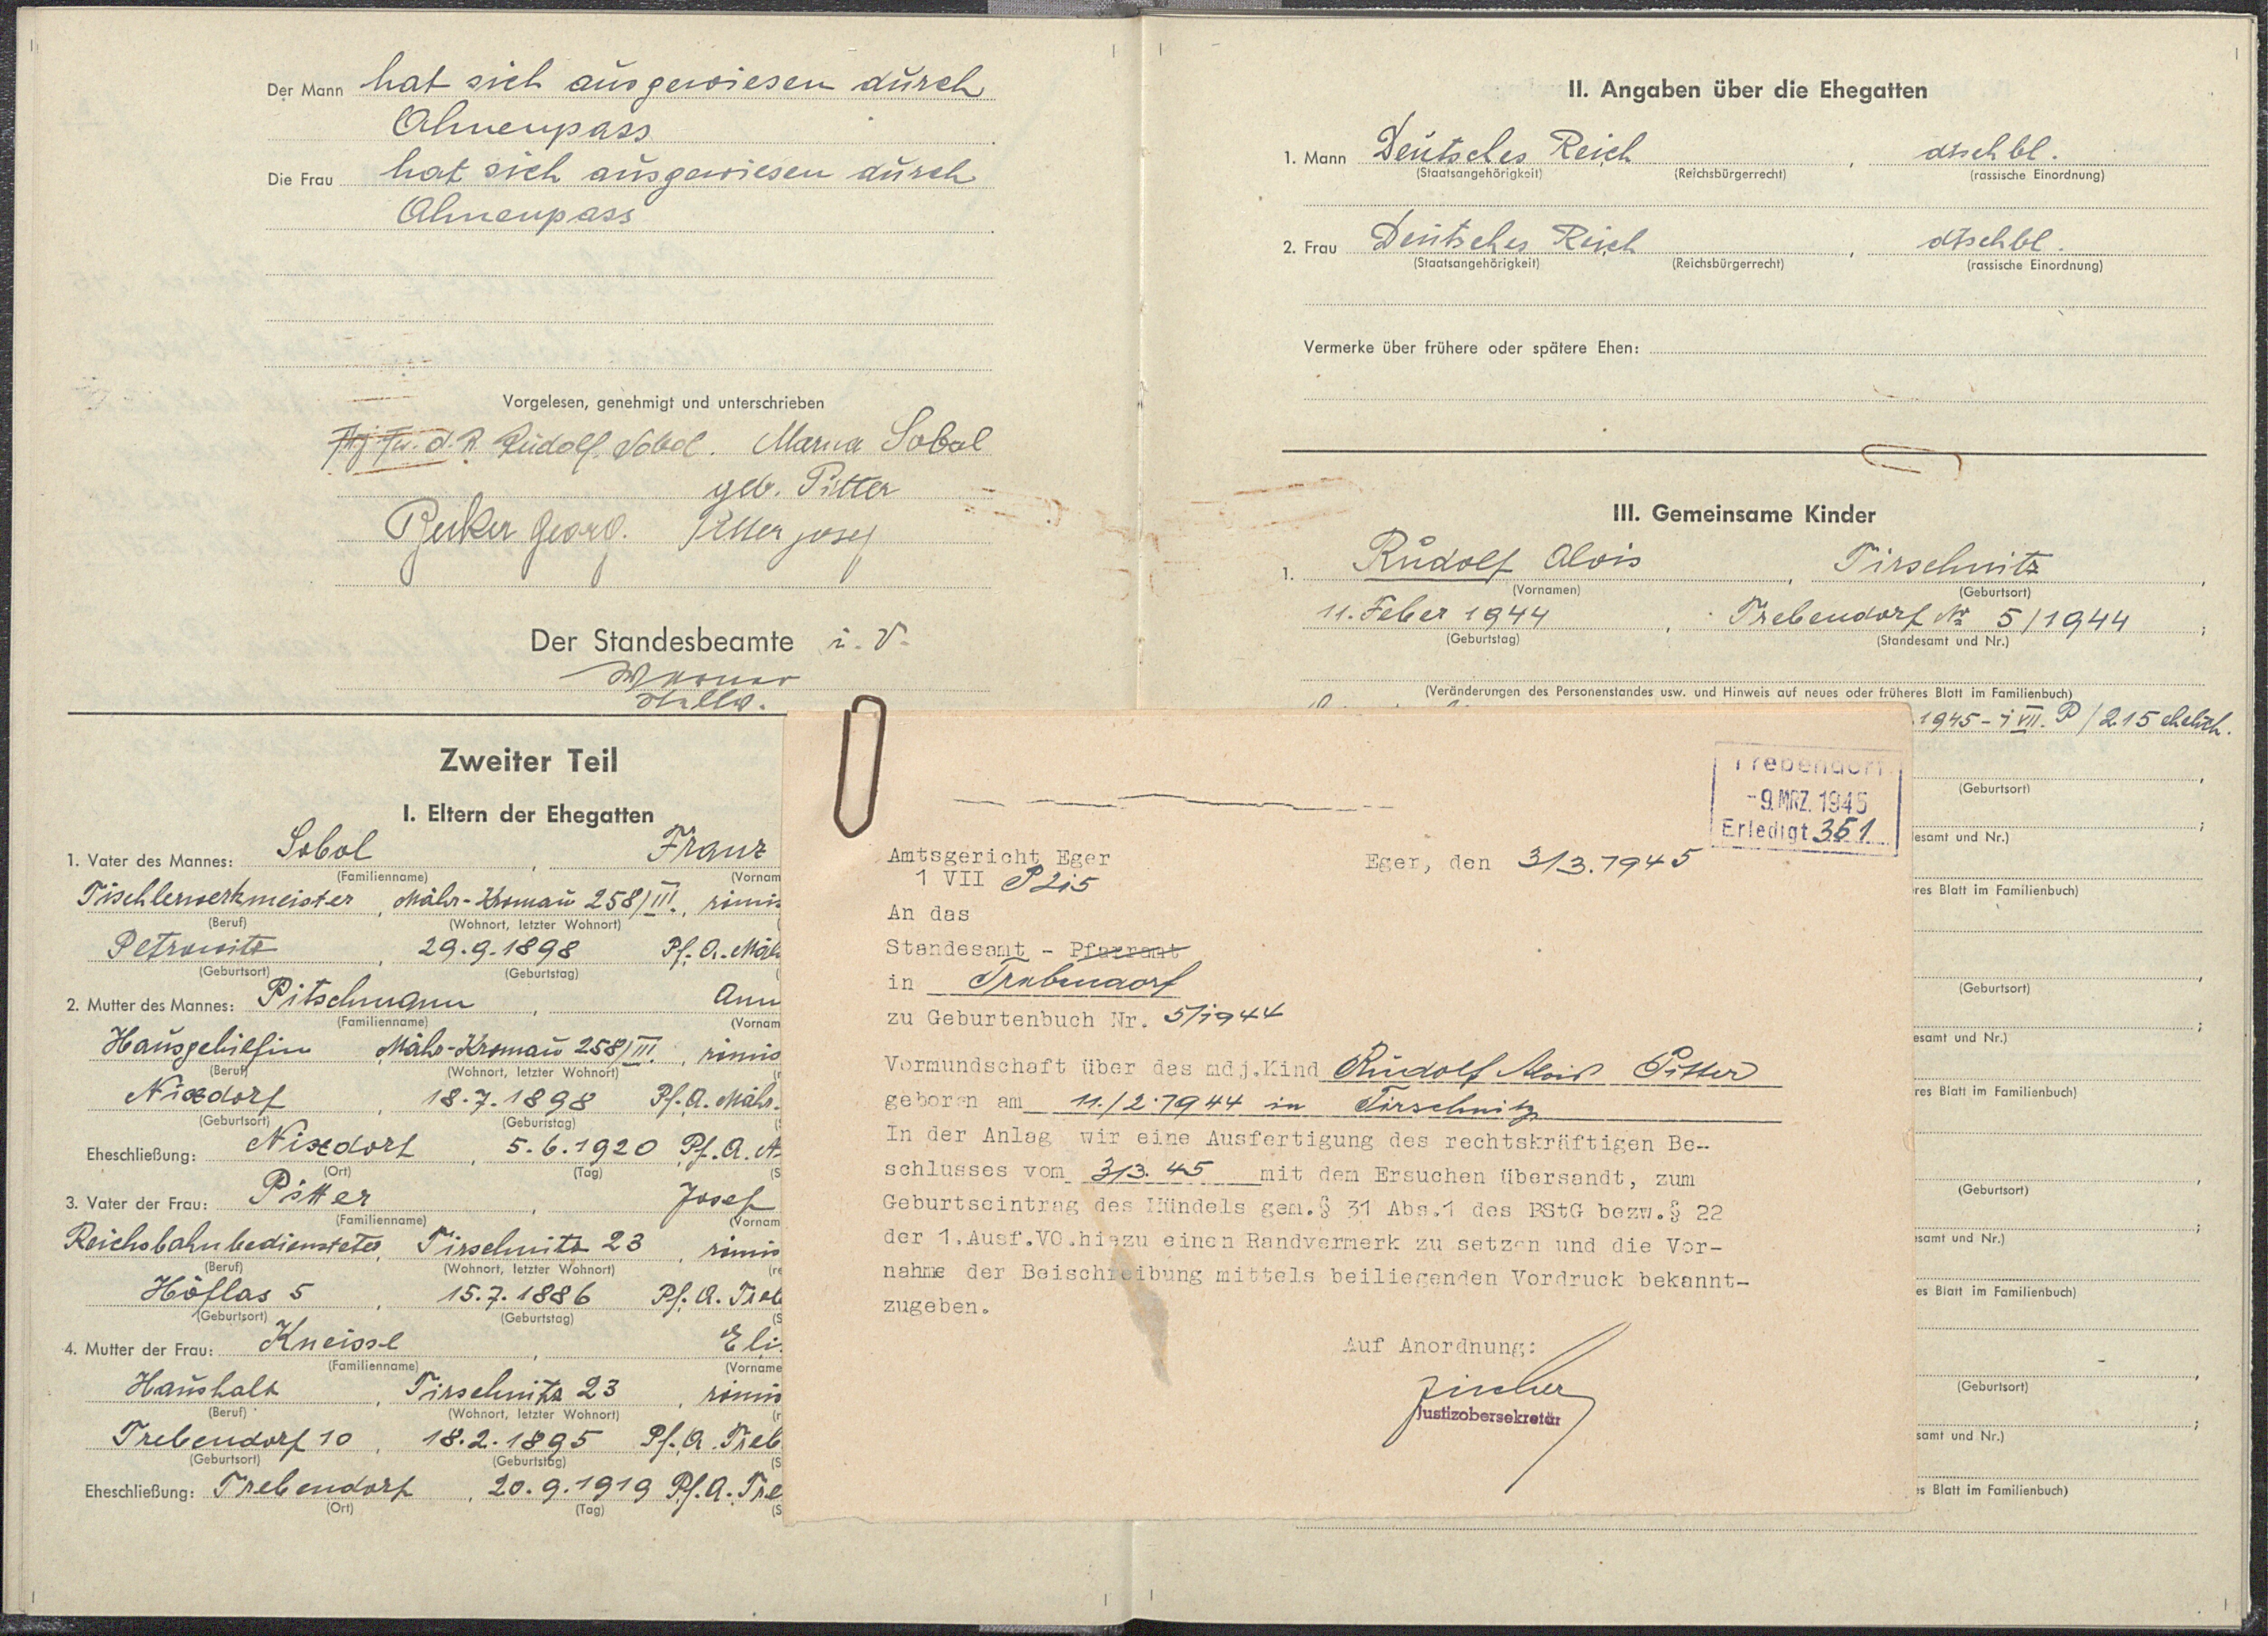 Der Mann hat sich ausgewiesen durch
Ahnenpass
Die Frau hat sich ausgewiesen durch
Ahnenpass
Vorgelesen, genehmigt und unterschrieben
d. R. Rudolf Sobol. Maria Sobol
geb. Pitter
Georg. Pitter Josef
Der Standesbeamte i. V.
Zweiter Teil
I. Eltern der Ehegatten
1. Vater des Mannes: Sobol, Franz
(Familienname) (Vornam
Tischlerwerkmeister, Mähr-Kromau 258/III., römis
(Beruf) (Wohnort, letzter Wohnort)
Petrowitz, 29.9.1898 Pf. A. Mäh
(Geburtsort) (Geburtstag)
2. Mutter des Mannes: Pitschmann, Ann
(Familienname) (Vornam
Hausgehilfin Mähr-Kromau 258/III, römis
(Beruf) (Wohnort, letzter Wohnort) (r
Nixdorf, 18.7.1898 Pf. A. Mähr.
(Geburtsort) (Geburtstag) (S
Eheschließung: Nixdorf, 5.6.1920 Pf. A. N
(Ort) (Tag) (S
3. Vater der Frau: Pitter, Josef
(Familienname) (Vornam
Reichsbahnbediensteter, Tirschnitz 23, römis
(Beruf) (Wohnort, letzter Wohnort) (re
Höflas 5, 15.7.1886 Pf. A. Treb
(Geburtsort) (Geburtstag) (S
4. Mutter der Frau: Kneissl, Eli
(Familienname) (Vorname
Haushalt, Tirschnitz 23, römis
(Beruf) (Wohnort, letzter Wohnort) (r
Trebendorf 10, 18.2.1895 Pf. A. Treb
(Geburtsort) (Geburtstag) (S
Eheschließung: Trebendorf, 20.9.1919 Pf. A. Tre
(Ort) (Tag) (S
II. Angaben über die Ehegatten
1. Mann Deutsches Reich, dtschbl.
(Staatsangehörigkeit) (Reichsbürgerrecht) (rassische Einordnung)
2. Frau Deutsches Reich, dtschbl.
(Staatsangehörigkeit) (Reichsbürgerrecht) (rassische Einordnung)
Vermerke über frühere oder spätere Ehen:
III. Gemeinsame Kinder
1. Rudolf Alois, Tirschnitz,
(Vornamen) (Geburtsort)
11. Feber 1944, Trebendorf Nr. 5/1944;
(Geburtstag) (Standesamt und Nr.)
(Veränderungen des Personenstandes usw. und Hinweis auf neues oder früheres Blatt im Familienbuch)
.1945 - 1 VII. P/215 ehelich.
(Geburtsort)
esamt und Nr.)
res Blatt im Familienbuch)
(Geburtsort)
esamt und Nr.)
res Blatt im Familienbuch)
(Geburtsort)
samt und Nr.)
es Blatt im Familienbuch)
(Geburtsort)
samt und Nr.)
s Blatt im Familienbuch)
Trebendorf
-9. MRZ. 1945
Erledigt 351
Amtsgericht Eger Eger, den 3/3.1945
1 VII P 215
An das
Standesamt - Pfarramt
in Trebendorf
zu Geburtenbuch Nr. 5/1944
Vormundschaft über das mdj.Kind Rudolf Alois Pitter
geboren am 11./2.1944 in Tirschnitz
In der Anlag wir eine Ausfertigung des rechtskräftigen Be-
schlusses vom 3/3.45 mit dem Ersuchen übersandt, zum
Geburtseintrag des Mündels gem.§ 31 Abs.1 des PStG bezw.§ 22
der 1.Ausf.VO.hiezu einen Randvermerk zu setzen und die Vor-
nahme der Beischreibung mittels beiliegenden Vordruck bekannt-
zugeben.
Auf Anordnung:
Fischer
Justizobersekretär